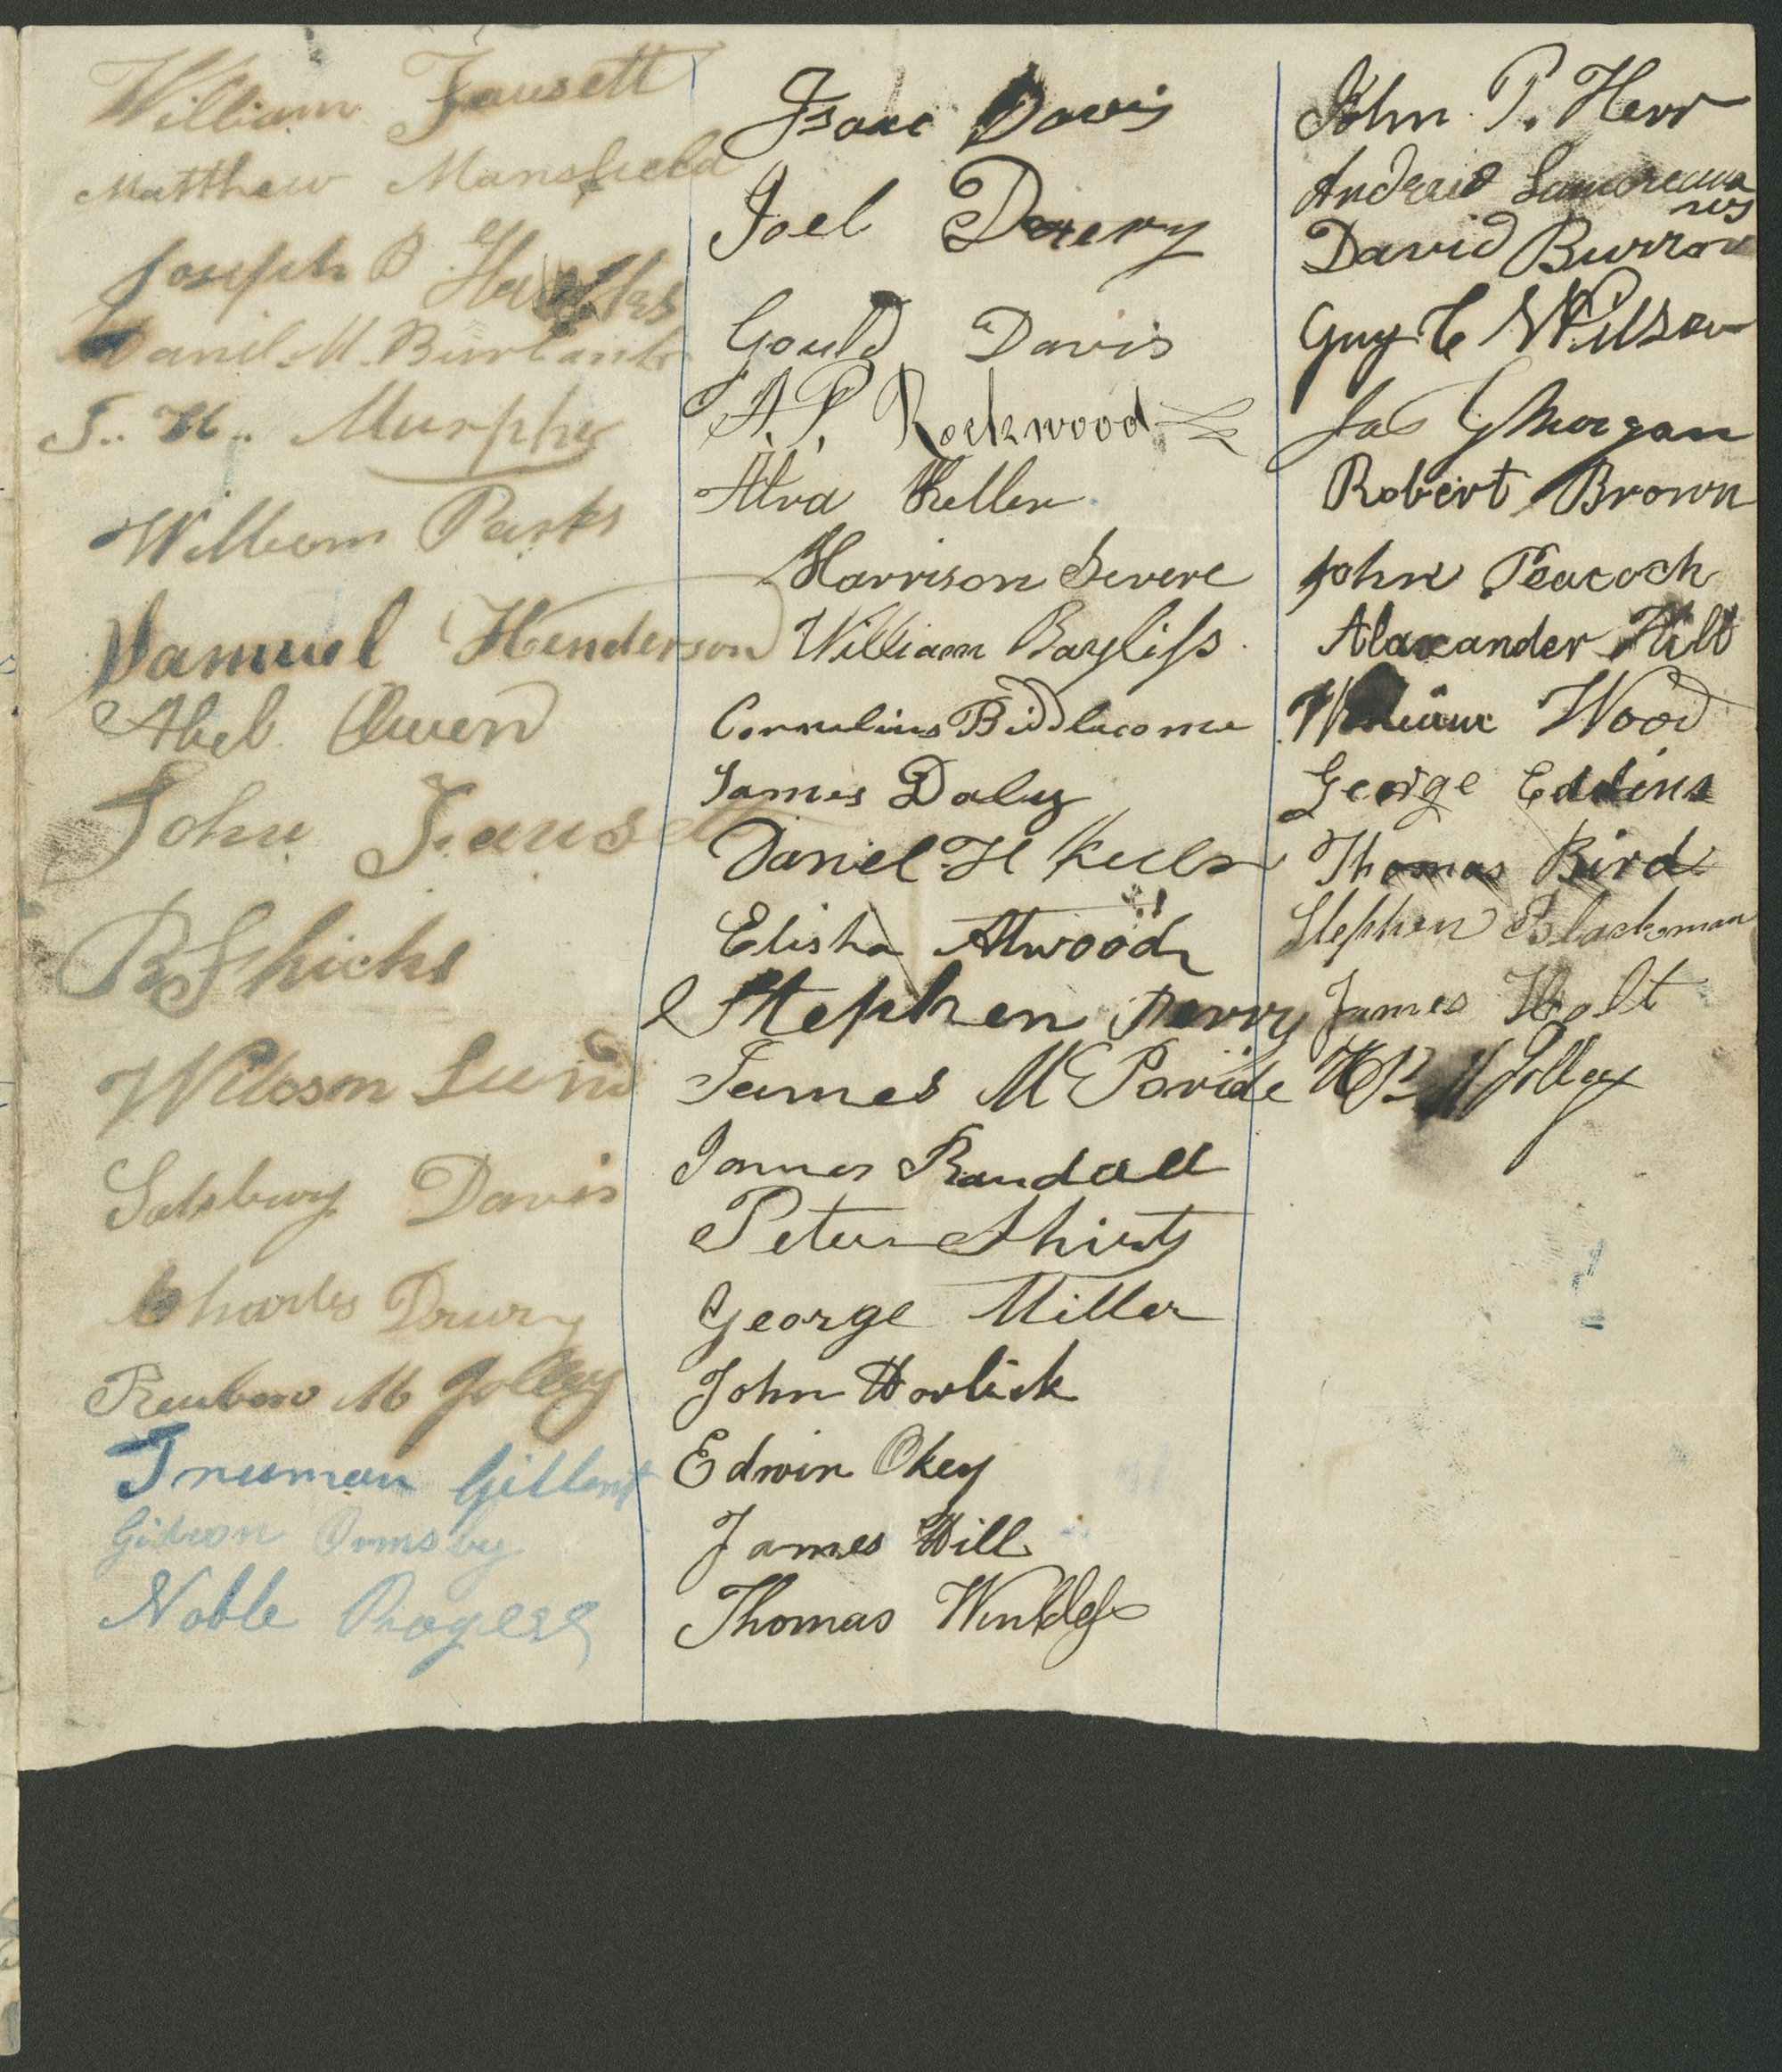 William Fausett
Matthew Mansfield
Joseph B Hawkes
Daniel M. Burbank
J.. H.. Murphy
William Parks
Samuel Henderson
Abel Owen
John Fausett
B S hicks
Willson Lund
Salsbury Davis
Charles Drury
Reuben M Jolley
Truman Gillett
Gideon Ormsby
Noble Rogers
Isaac Davis
Joel Drury
Gould Davis
A. P. Rockwood
Alva Keller
Harrison Severe
William Bayliss
Cornelius Bidlacome
James Daly
Daniel H Keeler
Elisha Atwood
Stephen Perry
James McPavide
James Randall
Peter Shirts
George Miller
John Horlick
Edwin Okey
James Hill
Thomas Winkless
John P. Herr
Andrew Lamoreaux
David Burrows
Guy C Willson
Jas G Morgan
Robert Brown
John Peacock
Alaxander Hill
William Wood
George Eddins
Thomas Bird
Stephen Blackman
James Holt
H B M Jolley